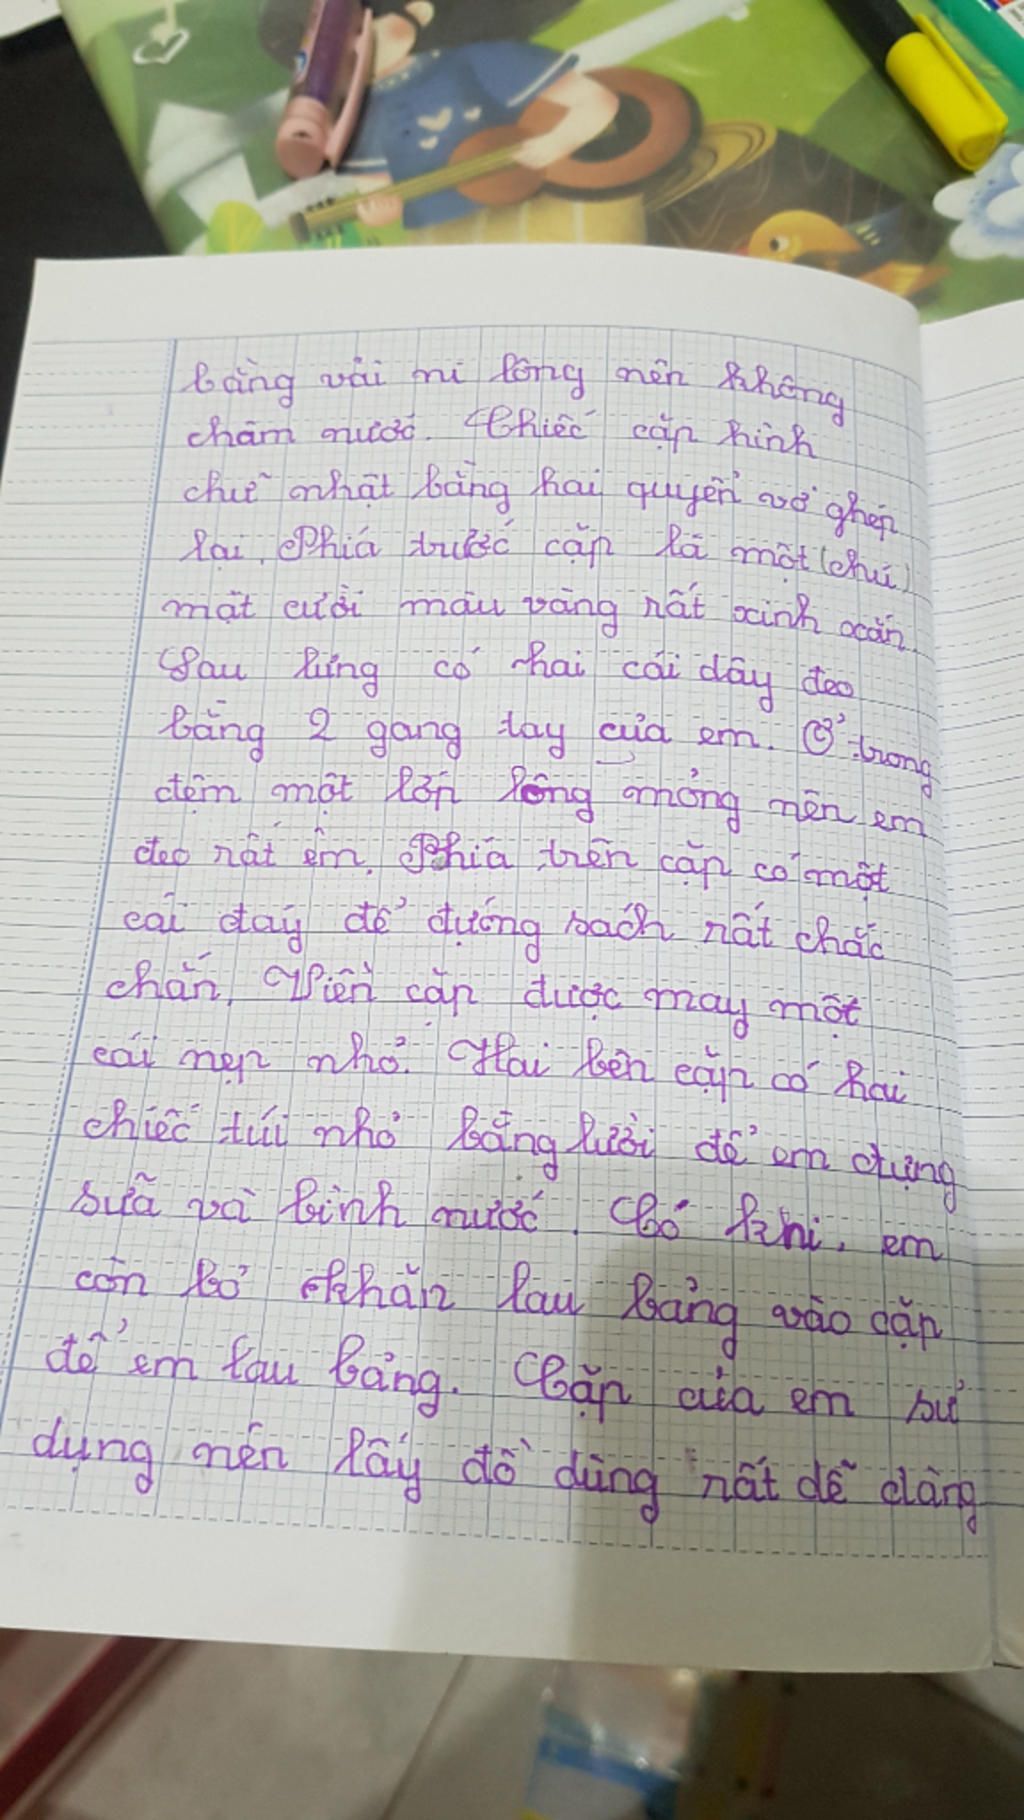 bằng vải ni lông nên không
thấm nước. Chiếc cặp hình
chữ nhật bằng hai quyển vở ghép
lại. Phía trước cặp là một (chú)
mặt cười màu vàng rất xinh xắn.
Sau lưng có hai cái dây đeo
bằng 2 gang tay của em. Ở trong
đệm một lớp lông mỏng nên em
đeo rất êm. Phía trên cặp có một
cái đay để đựng sách rất chắc
chắn. Viền cặp được may một
cái nẹp nhỏ. Hai bên cặp có hai
chiếc túi nhỏ bằng lưới để em đựng
sữa và bình nước. Có khi, em
còn bỏ khăn lau bảng vào cặp
để em lau bảng. Cặp của em sử
dụng nên lấy đồ dùng rất dễ dàng